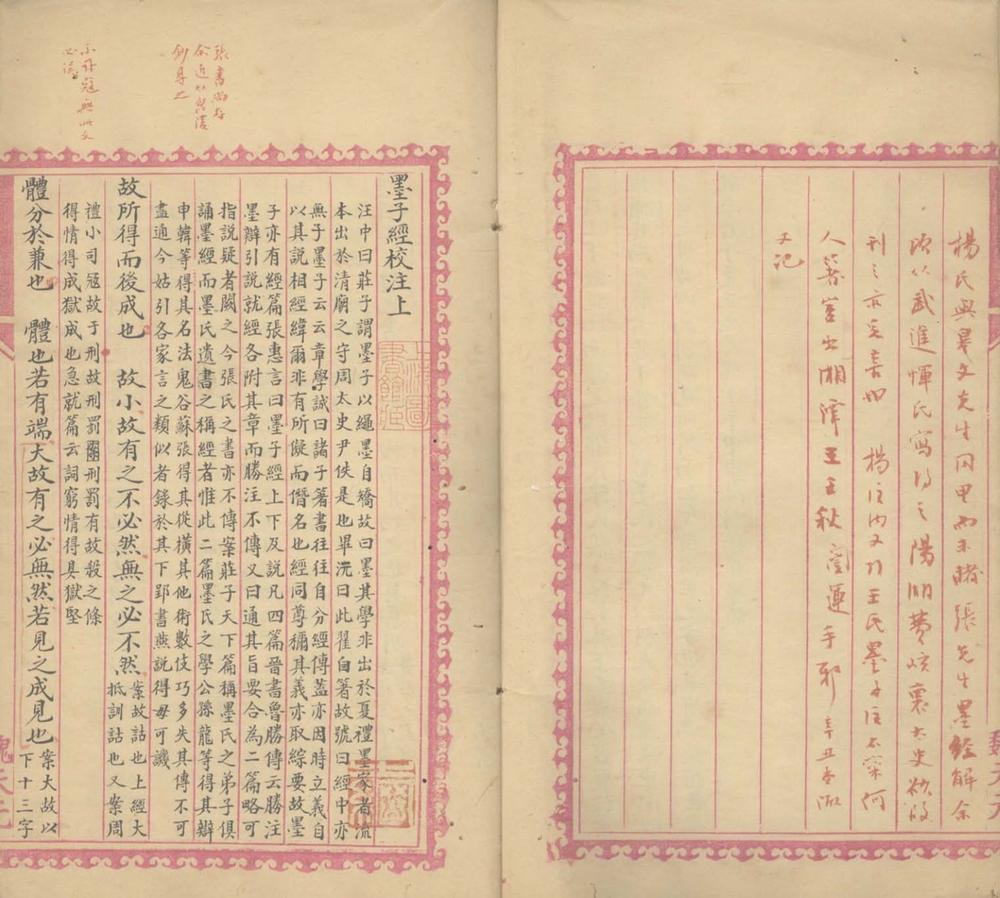 楊氏與皋文先生同甲而未睹張先生墨經解余
從武進惲氏寫得之陽湖費屺懷太史欲
刊之亦至善也 楊注內又引王氏墨子注不案何
人箸當出湘潭王壬秋闓運手耶辛丑
又記
墨子經校注上
汪中曰莊子謂墨子以繩墨自矯故曰墨其學非出於夏禮墨家者流
本出於清廟之守周太史尹佚是也畢沅曰此翟自箸故號曰經中亦
無子墨子云云章學誠曰諸子箸書往往自分經傳蓋亦因時立義自
以其說相經緯爾非有所儗而僭名也經同尊稱其義亦取綜要故墨
子亦有經篇張惠言曰墨子經上下及說凡四篇晉書魯勝傳云勝注
墨辯引說就經各附其章而勝注不傳又曰通其旨要合為二篇略可
指說疑者闕之今張氏之書亦不傳案莊子天下篇稱墨氏之弟子俱
誦墨經而墨氏遺書之稱經者惟此二篇墨氏之學公孫龍等得其辯
申韓等得其名法鬼谷蘇張得其從橫其他術數伎巧多失其傳不可
盡通今姑引各家言之類似者錄於其下郢書燕說得毋可譏
故所得而後成也 故小故有之不必然無之必不然 案故詁也上經大
抵訓詁也又案周
禮小司寇故于刑故刑罰圜刑罰有故殺之條
得情得成獄成也急就篇云詞窮情得具獄堅
體分於兼也 體也若有端大故有之必無然若見之成見也 案大故以
下十三字
張書尚存
余近以
鈔得之
小司寇無此文
必誤